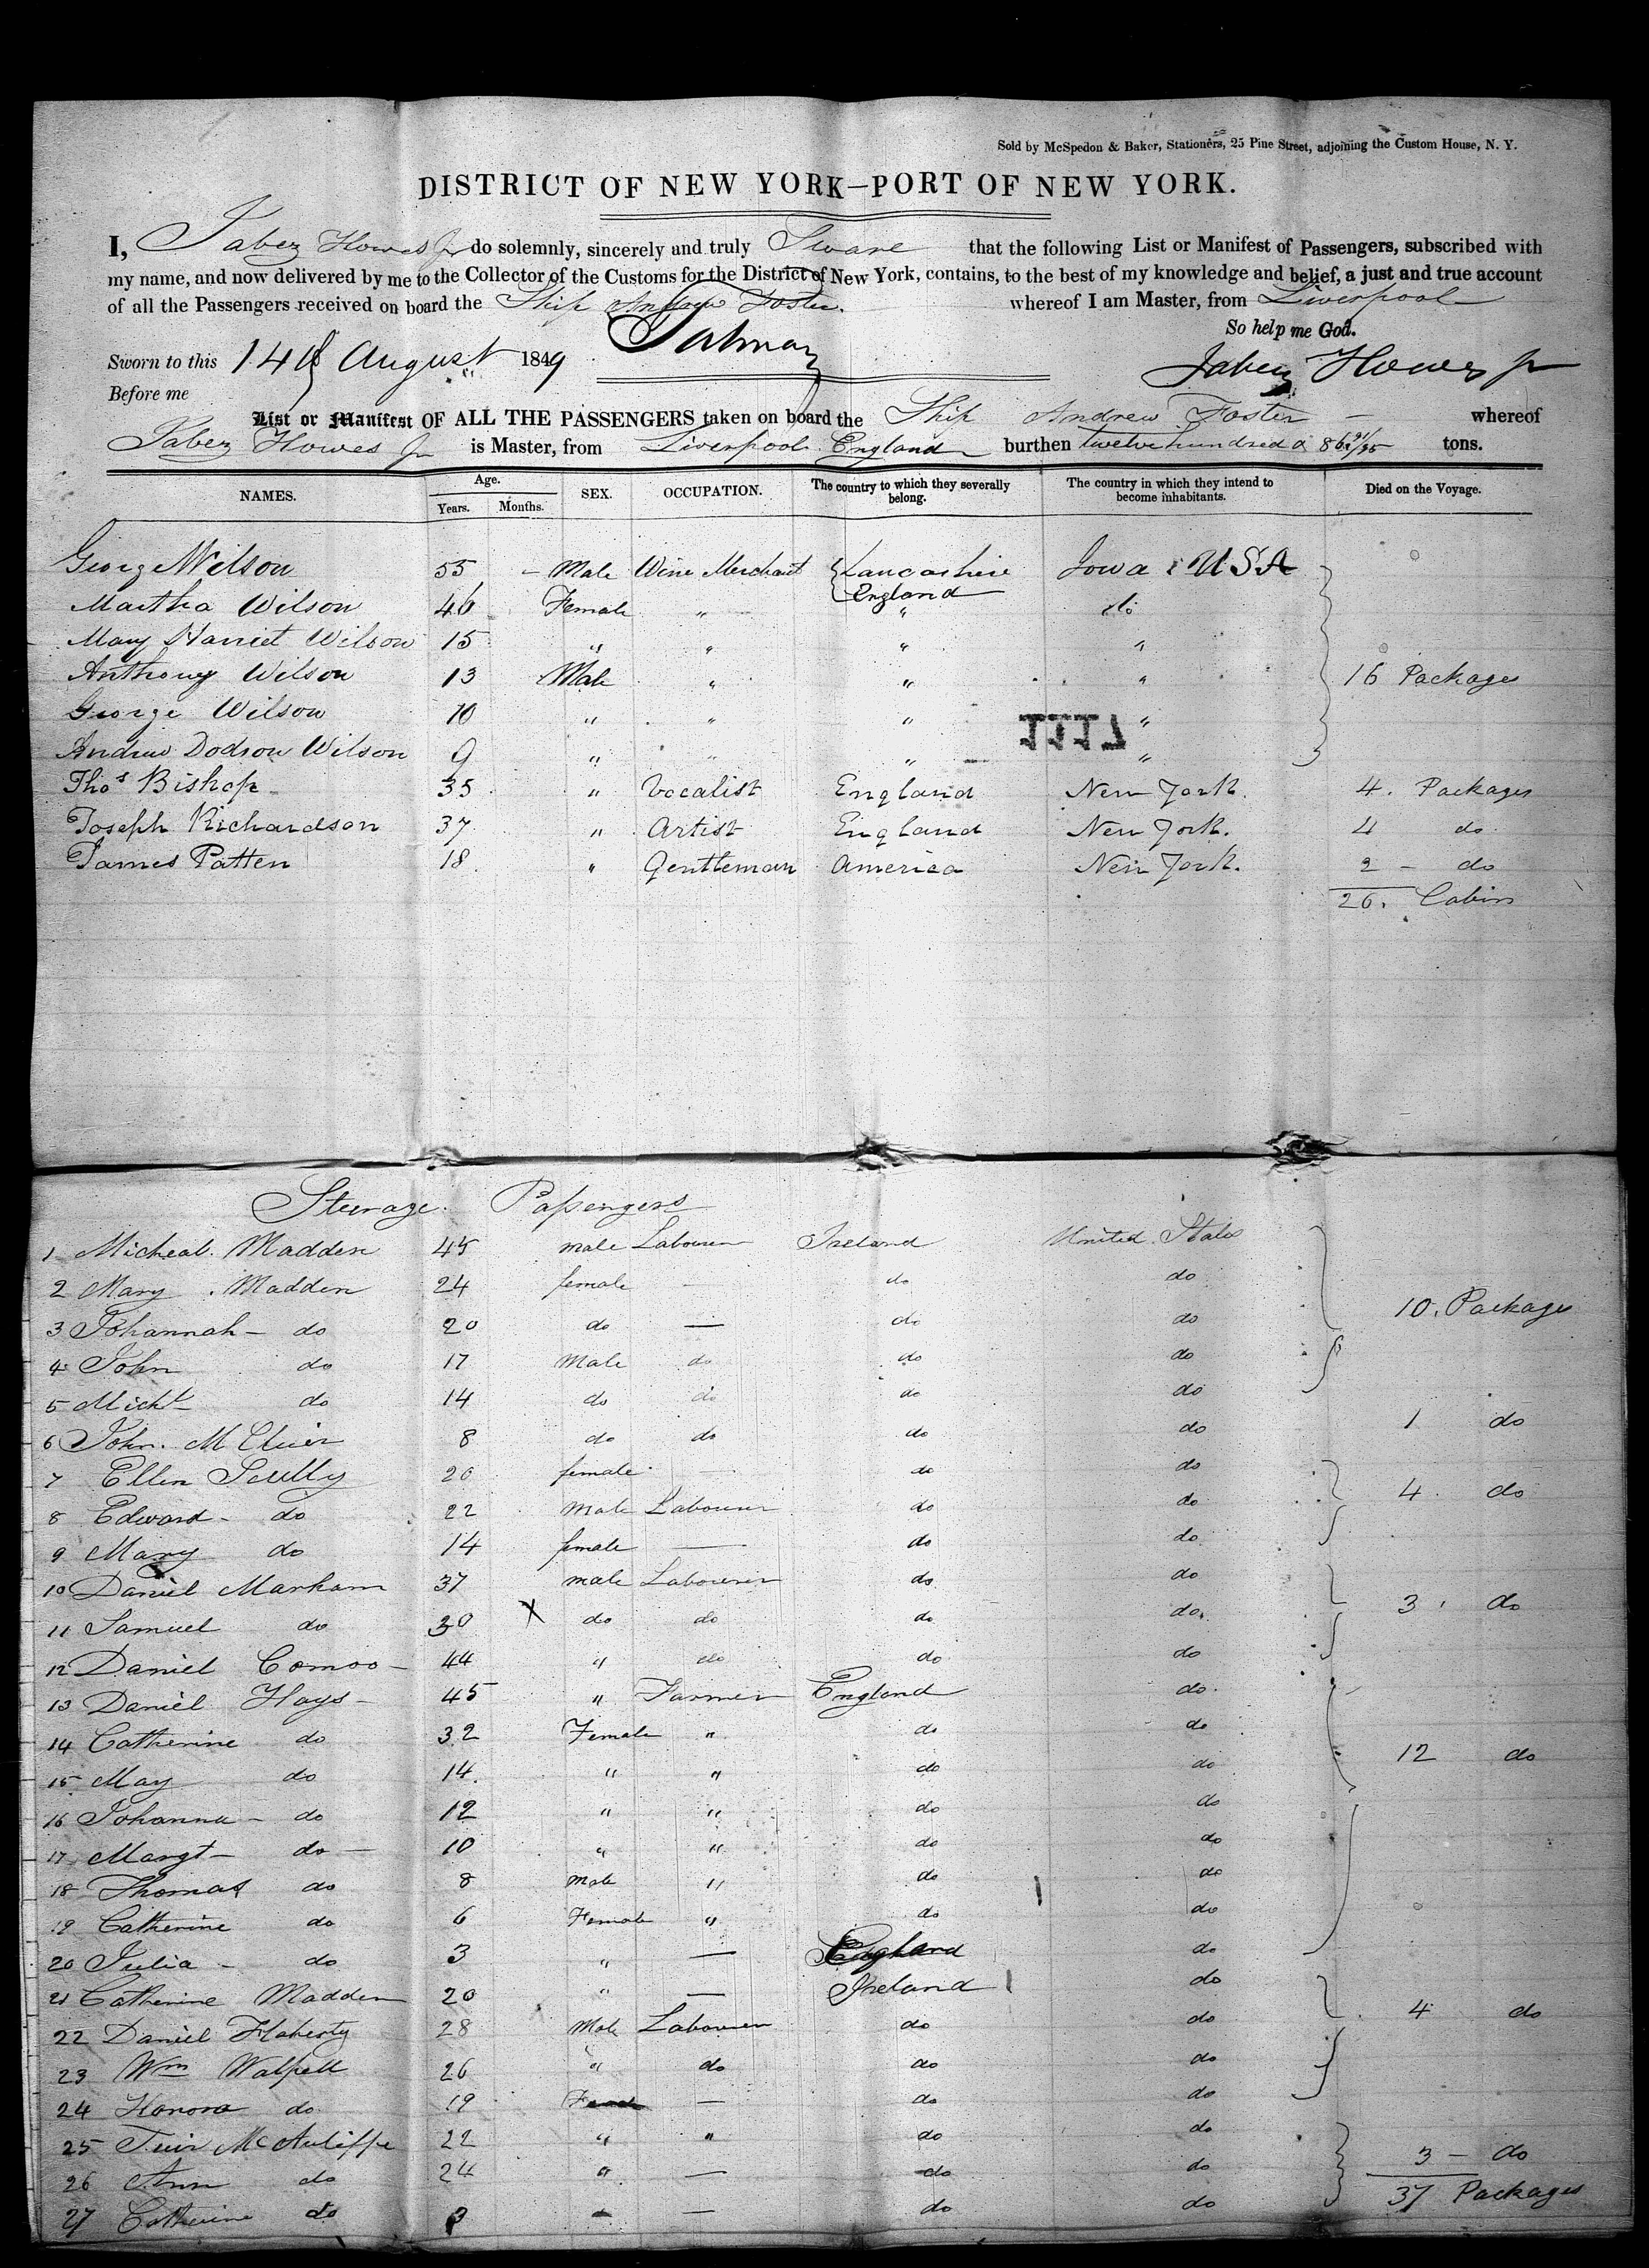 Sold by McSpedon & Baker, Stationers, 25 Pine Street, adjoining the Custom House, N. Y.
DISTRICT OF NEW YORK—PORT OF NEW YORK.
I, Jabez Howes Jr do solemnly, sincerely and truly Sware that the following List or Manifest of Passengers, subscribed with
my name, and now delivered by me to the Collector of the Customs for the District of New York, contains, to the best of my knowledge and belief, a just and true account
of all the Passengers received on board the Ship Andrew Foster. whereof I am Master, from Liverpool
So help me God.
Sworn to this 14th August 1849 Jabez Howes Jr
Before me
List or Manifest OF ALL THE PASSENGERS taken on board the Ship Andrew Foster — whereof
Jabez Howes Jr is Master, from Liverpool England burthen twelve hundred & tons.
NAMES. Age. Years. Months. SEX. OCCUPATION. The country to which they severally belong. The country in which they intend to become inhabitants. Died on the Voyage.
George Wilson 55 - Male Wine Merchant Lancashire England Iowa USA
Martha Wilson 46 Female " " do
Mary Harriet Wilson 15 " " " "
Anthony Wilson 13 Male " " " 16 Packages
George Wilson 10 " " " "
1117
Andrew Dodson Wilson 9 " " " "
Thos Bishop 35 " Vocalist England New York. 4. Packages
Joseph Richardson 37 " Artist England New York. 4 do
James Patten 18 " Gentleman America New York. 2 - do
26. Cabin
Steerage Passengers
1 Micheal Madden 45 male Labourer Ireland United States
2 Mary Madden 24 female — do do 10. Packages
3 Johannah - do 20 do — do do
4 John do 17 Male do do do
5 Michl do 14 do do do do
6 John 8 do do do do 1 do
7 Ellen Scully 20 female — do do
8 Edward - do 22 Male Labourer do do 4. do
9 Mary do 14 female — do do
10 Daniel Markam 37 male Labourer do do
11 Samuel do 30 X do do do do 3. do
12 Daniel 44 " do do do
13 Daniel Hays - 45 " Farmer England do
14 Catherine do 32 Female " do do
15 May do 14. " " do do 12 do
16 Johanna - do 12 " " do do
17 Margt - do - 10 " " do do
18 Thomas do 8 Male " do do
19 Catherine do 6 Female " do do
20 Julia - do 3 " — England do
21 Catherine Madden 20 " — Ireland do
22 Daniel Flaherty 28 Male Labourer do do 4 do
23 Wm 26 " do do do
24 Honora do 19 — do do
25 McAuliffe 22 " " do do
26 Ann do 24 " — do do 3 - do
27 Catherine do 3 — do do 37 Packages